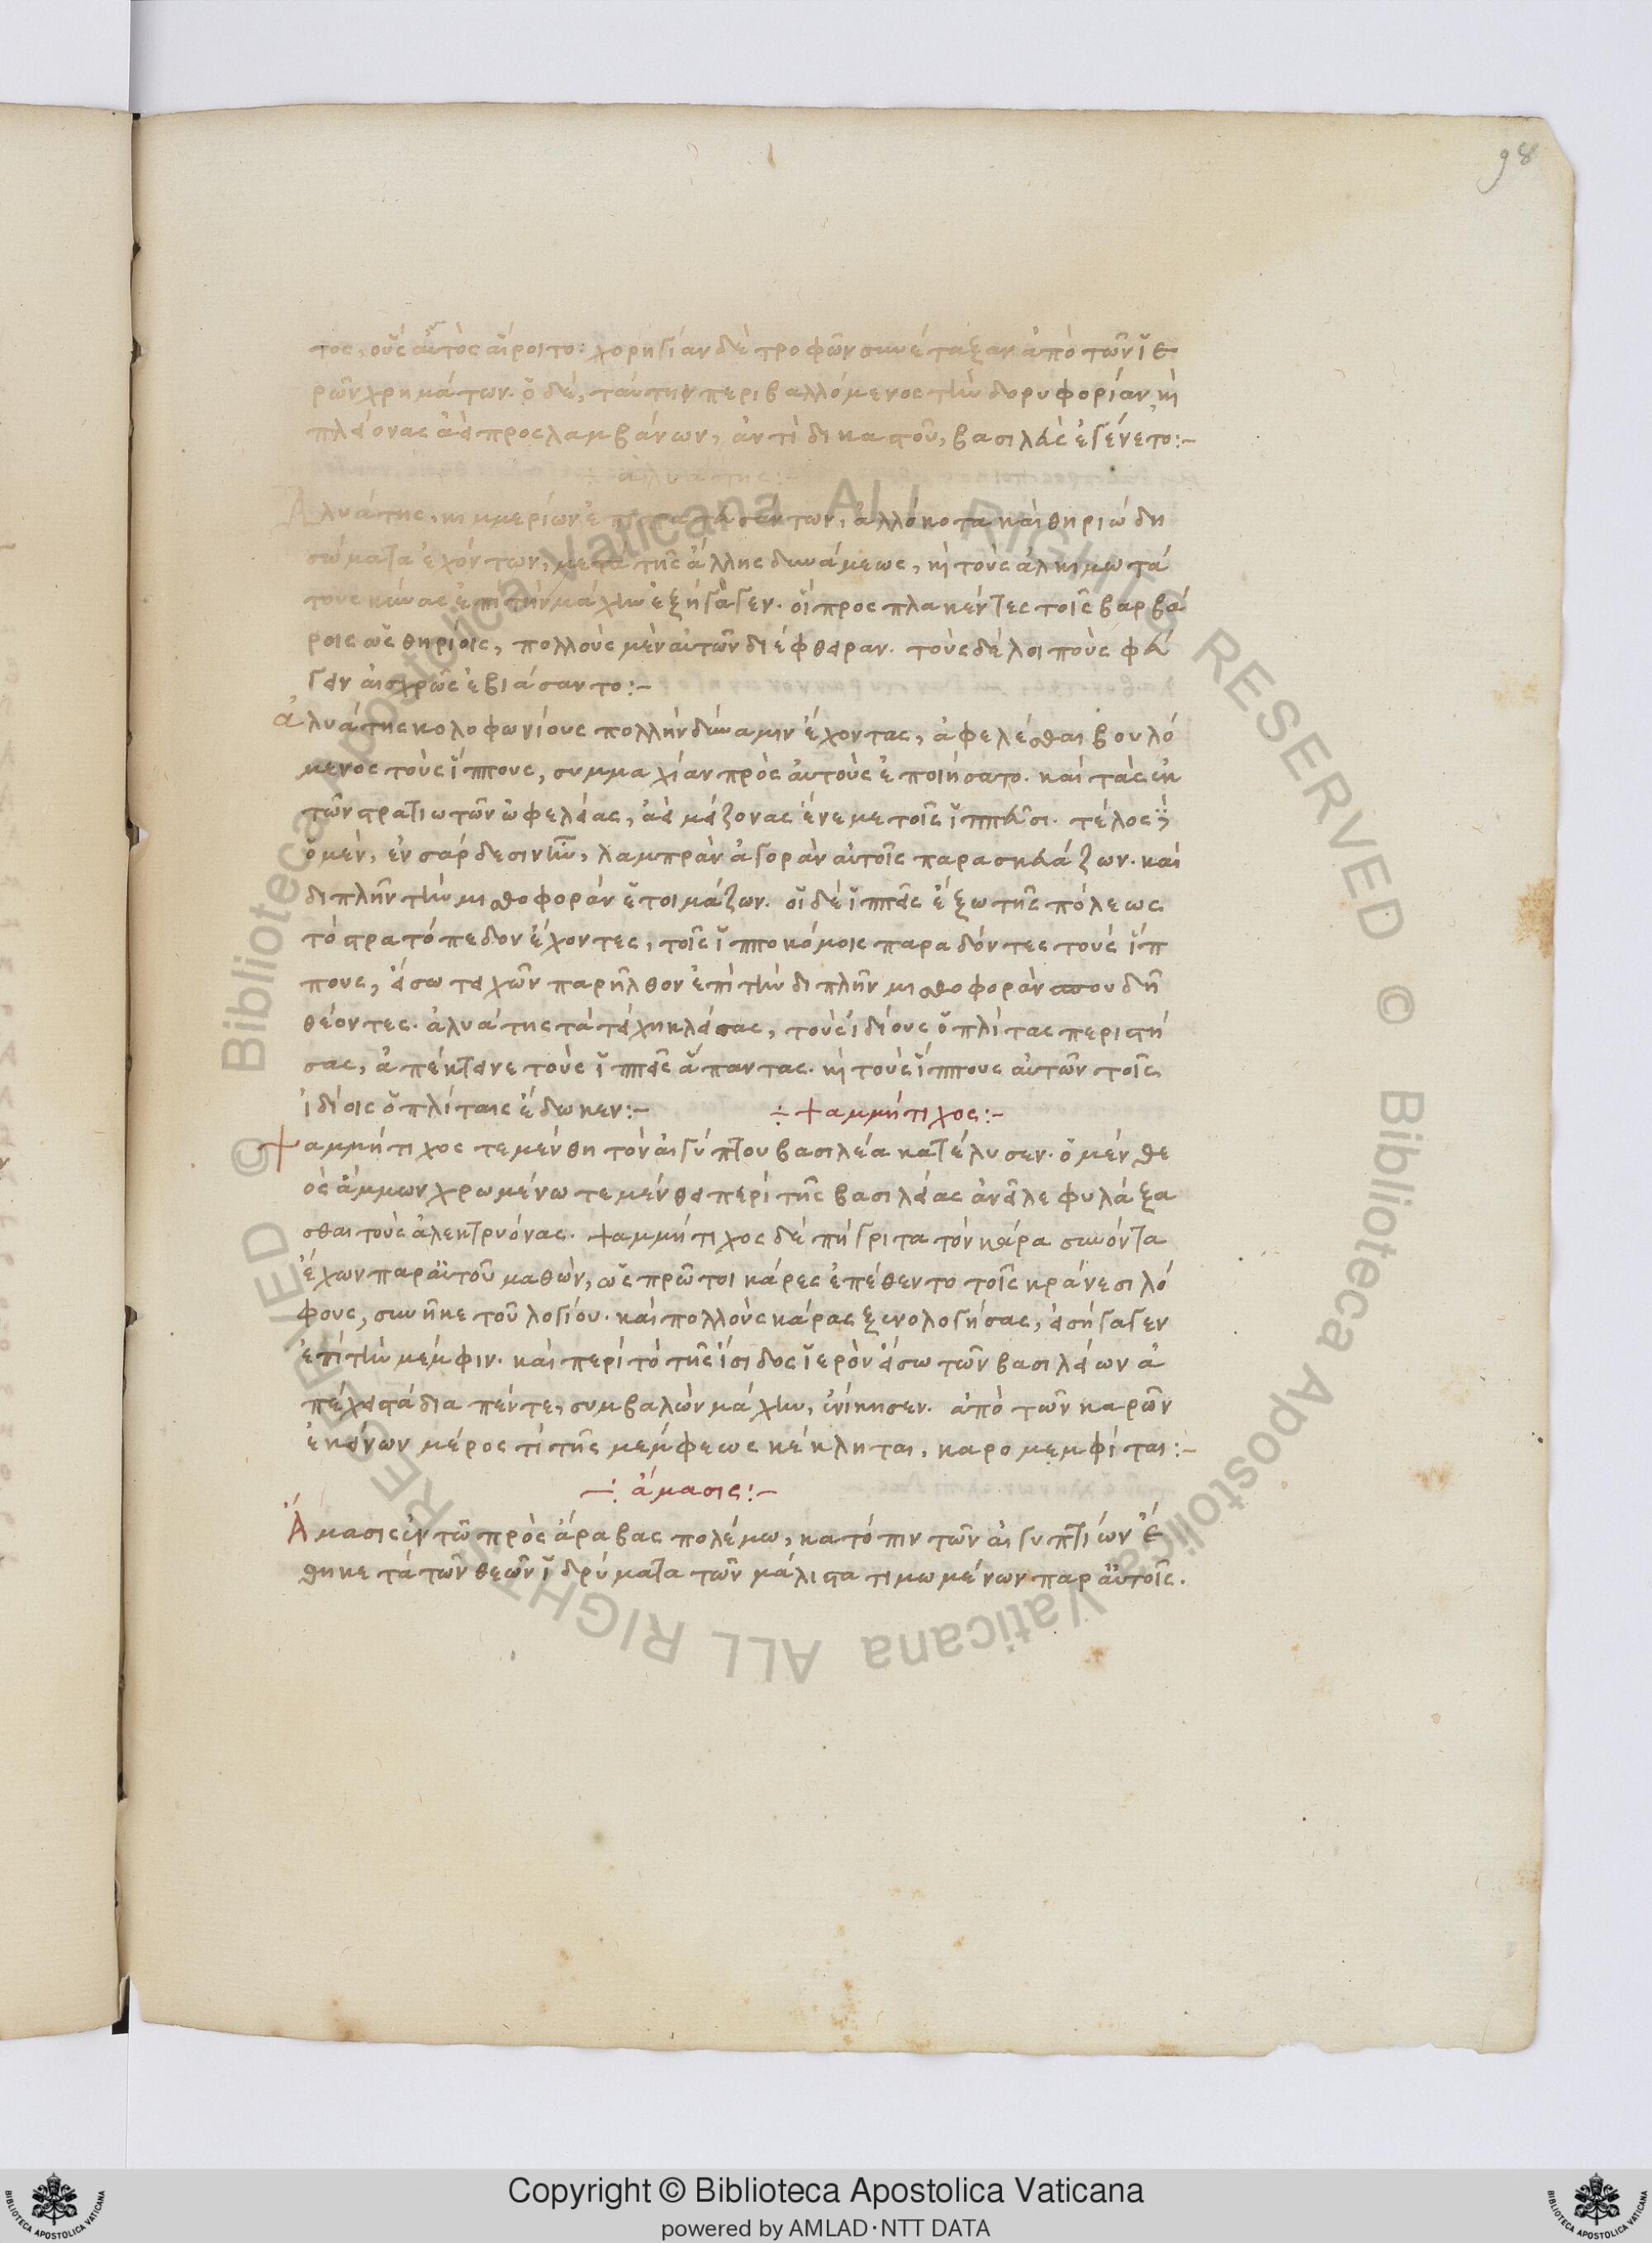 98
τος, οὓς αὐτὸς αἵροιτο· χορηγίαν δὲ τροφῶν συνέταξαν ἀπὸ τῶν ἱε
ρῶν χρημάτων. ὁ δὲ, ταύτην περιβαλλόμενος τὴν δορυφορίαν, καὶ
πλείονας ἀεὶ προσλαμβάνων, ἀντὶ δικαστοῦ, βασιλεὺς ἐγένετο:-
ἀλυάτης:
Ἀλυάτης, κιμμερίων ἐπιστρατευσάντων, ἀλλόκοτα καὶ θηριώδη
σώματα ἐχόντων, μετὰ τῆς ἄλλης δυνάμεως, καὶ τοὺς ἀλκιμωτά
τους κύνας ἐπὶ τὴν μάχην ἐξήγαγεν. οἱ προσπλακέντες τοῖς βαρβά
ροις ὡς θηρίοις, πολλοὺς μὲν αὐτῶν διέφθειραν. τοὺς δὲ λοιποὺς φεύ
γειν αἰσχρῶς ἐβιάσαντο:-
ἀλυάτης κολοφωνίους πολλὴν δύναμιν ἔχοντας, ἀφελέσθαι βουλό
μενος τοὺς ἵππους, συμμαχίαν πρὸς αὐτοὺς ἐποιήσατο. καὶ τὰς ἐκ
τῶν στρατιωτῶν ὠφελείας, ἀεὶ μείζονας ἔνεμε τοῖς ἱππεῦσι. τέλος δὲ
ὁ μὲν, ἐν σάρδεσιν ἦν, λαμπρὰν ἀγορὰν αὐτοῖς παρασκευάζων. καὶ
διπλῆν τὴν μισθοφορὰν ἑτοιμάζων. οἱ δὲ ἱππεῖς ἔξω τῆς πόλεως
τὸ στρατόπεδον ἔχοντες, τοῖς ἱπποκόμοις παραδόντες τοὺς ἵπ
πους, εἴσω τειχῶν παρῆλθον ἐπὶ τὴν διπλῆν μισθοφορὰν σπουδῆ
θέοντες. ἀλυάτης τὰ τείχη κλείσας, τοὺς ἰδίους ὁπλίτας περιστή
σας, ἀπέκτεινε τοὺς ἱππεῖς ἅπαντας. καὶ τοὺς ἵππους αὐτῶν τοῖς
ἰδίοις ὁπλίταις ἔδωκεν:- ÷ ψαμμήτιχος:-
Ψαμμήτιχος τεμένθη τὸν αἰγύπτου βασιλέα κατέλυσεν. ὁ μὲν θε
ὸς ἄμμων χρωμένω τεμένθει περὶ τῆς βασιλείας ἀνεῖλε φυλάξα
σθαι τοὺς ἀλεκτρυόνας. ψαμμήτιχος δὲ πήγριτα τὸν κάρα συνόντα
ἔχων παρ αὐτοῦ μαθὼν, ὡς πρῶτοι κάρες ἐπέθεντο τοῖς κράνεσι λό
φους, συνῆκε τοῦ λογίου. καὶ πολλοὺς κάρας ξενολογήσας, εἰσήγαγεν
ἐπὶ τὴν μέμφιν. καὶ περὶ τὸ τῆς ἴσιδος ἱερὸν εἴσω τῶν βασιλείων ἀ
πέχει στάδια πέντε, συμβαλὼν μάχην, ἐνίκησεν. ἀπὸ τῶν καρῶν
ἐκείνων μέρος τὶ τῆς μέμφεως κέκληται, καρομεμφίται:-
÷ ἄμασις:-
Ἄμασις ἐν τῶ πρὸς ἄραβας πολέμω, κατόπιν τῶν αἰγυπτίων ἔ
θηκε τὰ τῶν θεῶν ἱδρύματα τῶν μάλιστα τιμωμένων παρ αὐτοῖς.
© Biblioteca Apostolica Vaticana ALL RIGHTS RESERVED © Biblioteca Apostolica Vaticana ALL RIGHTS RESERVED
Copyright © Biblioteca Apostolica Vaticana
powered by AMLAD·NTT DATA
BIBLIOTECA APOSTOLICA VATICANA
BIBLIOTECA APOSTOLICA VATICANA